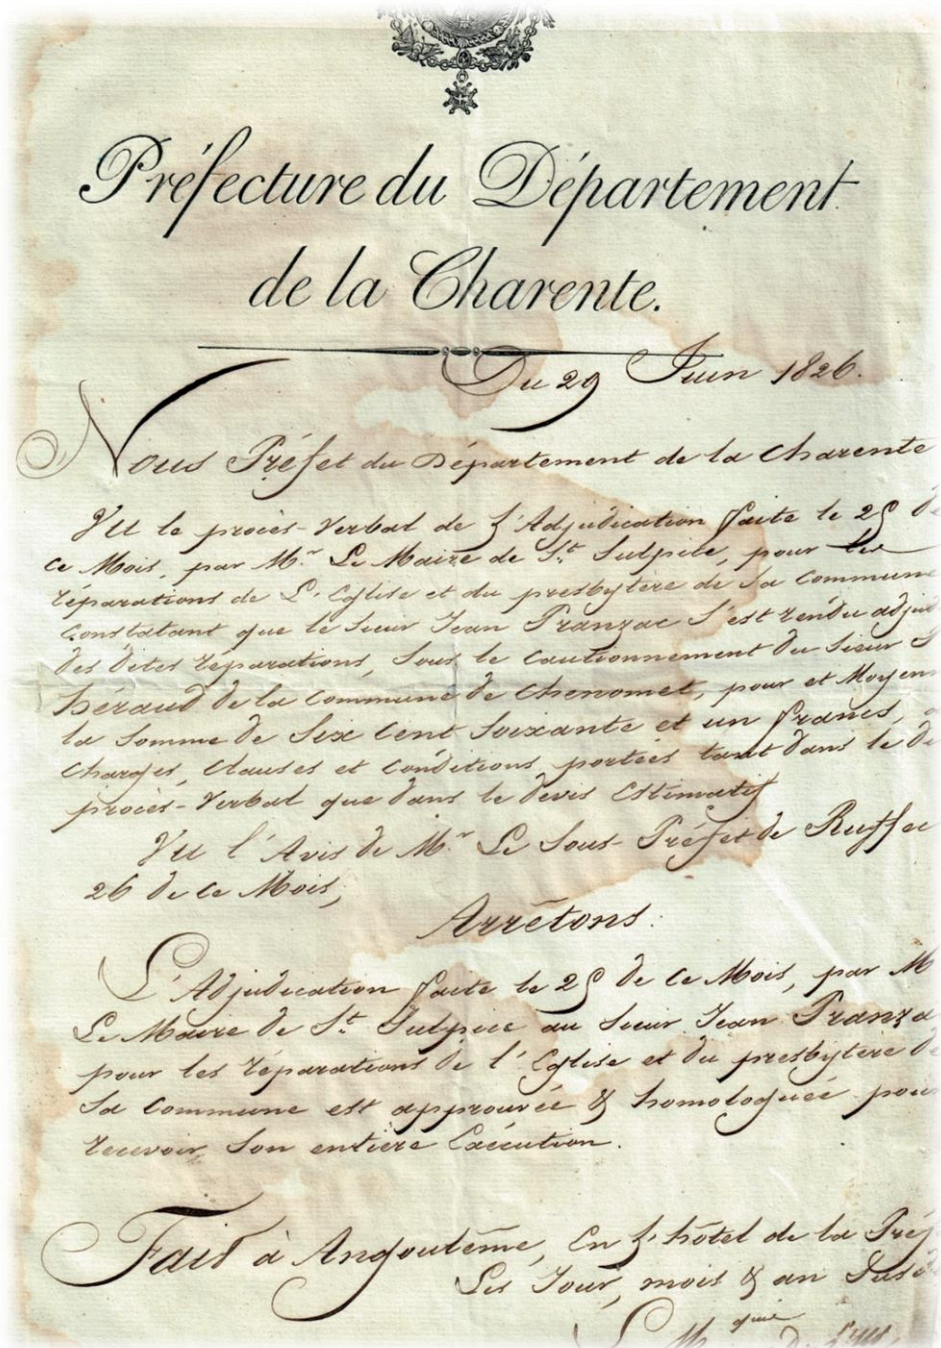 Préfecture du Département
de la Charente.
Du 29 Juin 1826.
Nous Préfet du Département de la Charente
Vu le procès-Verbal de L'Adjudication faite le 25 de
ce Mois, par Mr. Le Maire de St. Sulpice, pour les
réparations de L'Eglise et du presbytère de Sa Commune
Constatant que le Sieur Jean Pranzac S'est rendu adjud
des dites réparations, Sous le Cautionnement du Sieur
Béraud de la Commune de Chenomet, pour et Moyenn
la Somme de Six Cent Soixante et un francs,
Charges, Clauses et Conditions portées tant dans le d
procès-Verbal que dans le devis Estimatif
Vu l'Avis de Mr. Le Sous-Préfet de Ruffec
26 de ce Mois,
Arrêtons:
L'Adjudication faite le 25 de ce Mois, par M
Le Maire de St. Sulpice au Sieur Jean Pranza
pour les réparations de l'Eglise et du presbytère de
Sa Commune est approuvée & homologuée pour
recevoir Son entière Exécution.
Fait à Angoulême, En L'hôtel de la Préf
Les Jour, mois & an Susd